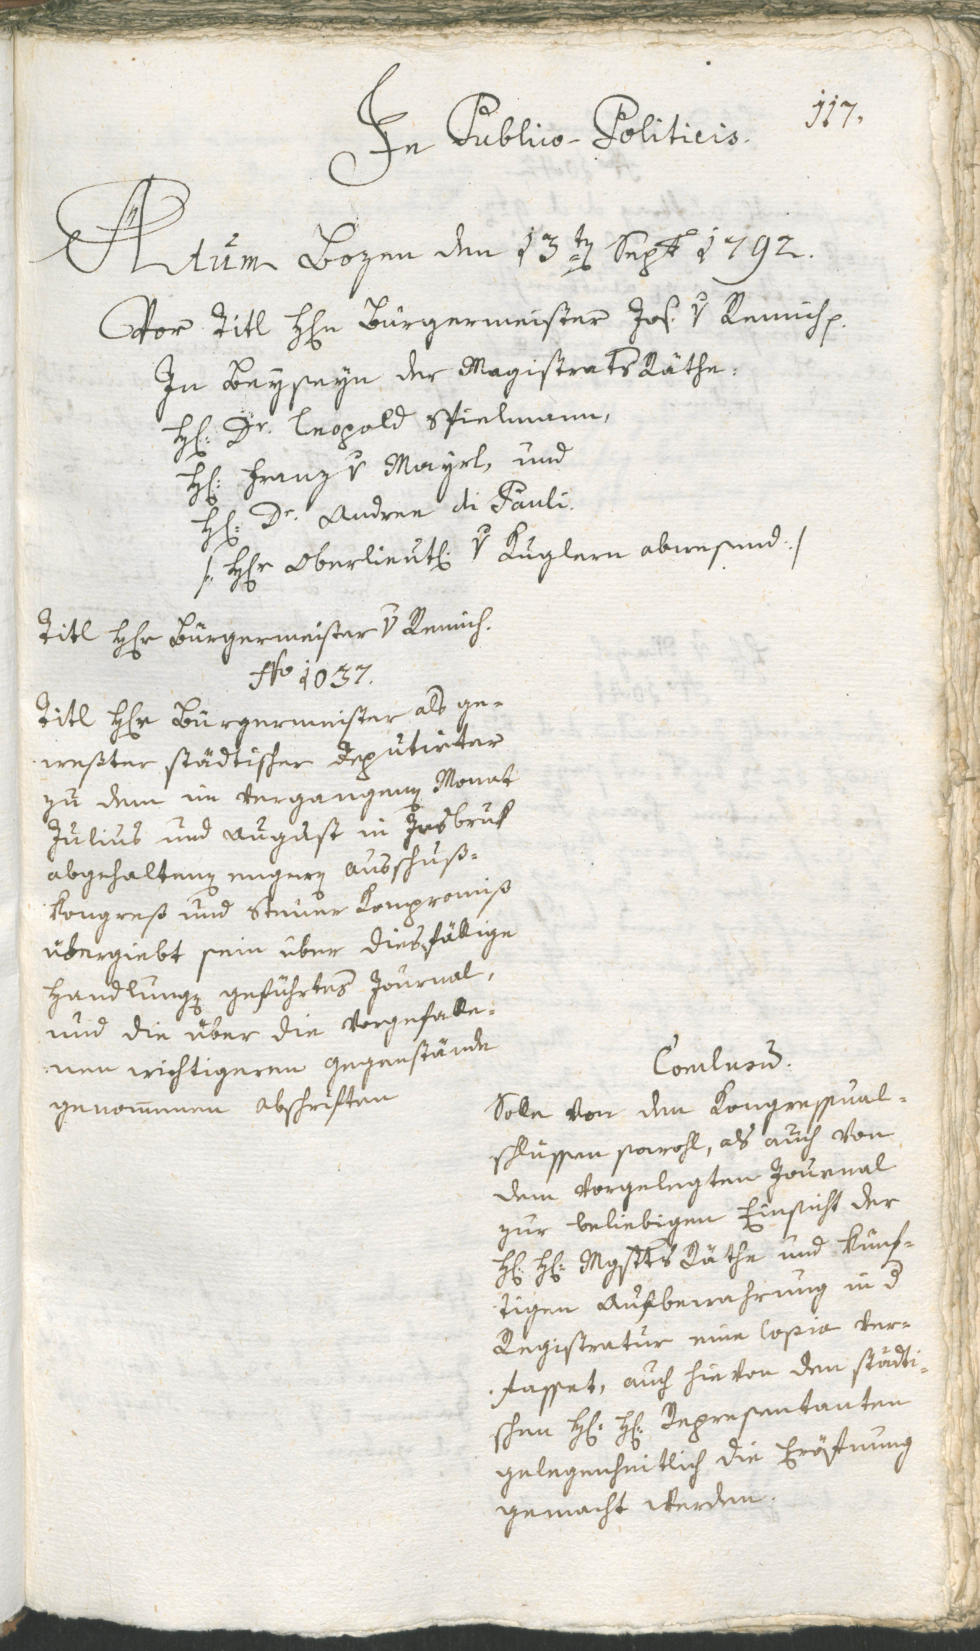 117.
In Publico-Politicis.
Actum Bozen den 13ten Sept 1792.
Vor Titl Hhn Bürgermeister Jos. v Remich p.
In Beyseyn der MagistratsRäthe.
Hh: Dr. Leopold Spielmann,
Hh: Franz v Mayrl, und
Hh: Dr. Andree di Pauli.
/: Hhr Oberlieut: v Kuglern abwesend :/
Titl Hhr Bürgermeister v Remich.
No 1037.
Titl Hhr Bürgermeister als ge-
weßter städtischer Deputirter
zu dem im vergangenen Monat
Julius und August in Insbruk
abgehaltenen engern Ausschuß-
kongreß und Steuer Kompromiß
übergiebt sein über diesfällige
Handlungen geführtes Journal,
und die über die vorgefalle-
nen wichtigeren Gegenstände
genommenen Abschriften
Conclusum.
Solle von den Kongressual-
schlüssen sowohl, als auch von
dem vorgelegten Journal
zur beliebigen Einsicht der
Hh: Hh: MgstrtsRäthe und künf-
tigen Aufbewahrung in d
Registratur eine Copia ver-
fasset, auch hievon den städti-
schen Hh: Hh: Representanten
gelegenheitlich die Eröfnung
gemacht werden.